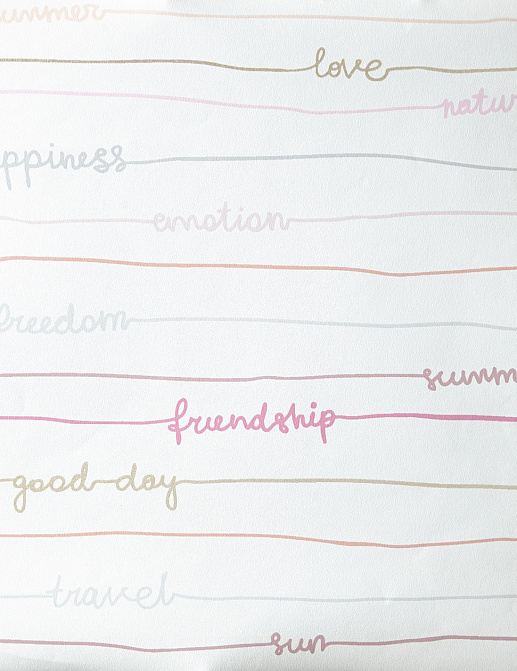 ummer
love
natur
ppiness
emotion
freedom
summ
friendship
good day
travel
sun